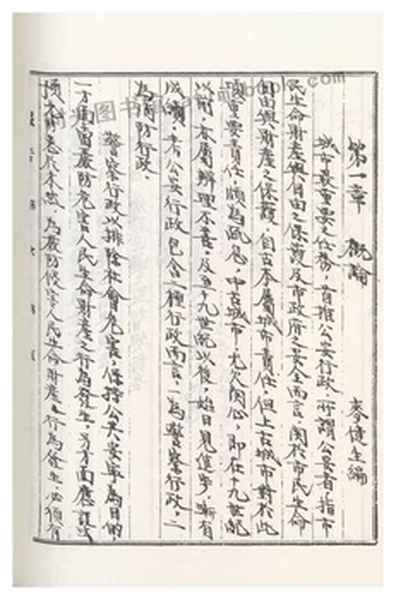 第一章 概論
麥健生編
城市最重要之任務，首推公安行政，所謂公安者指市
民生命財產與自由之保護及市政府之安全而言，関於市民生命
自由與財產之保護，自古本屬城市責任但上古城市對於此
項重要責任頗為忽，中古城市，尤欠関心，即在十九世紀
以前，亦屬辦理不善，及至十九世紀以後，始日見進步，漸有
成績，考公安行政包含二種行政而言，一為警察行政，二
為消防行政，
警察行政以排除社會危害，保持公共安寧為目的，
一方面當嚴防危害人民生命財產之行為發生，另方面應設法
預木制患於未然，為嚴防侵害人民生命財產之行為發生，必須有